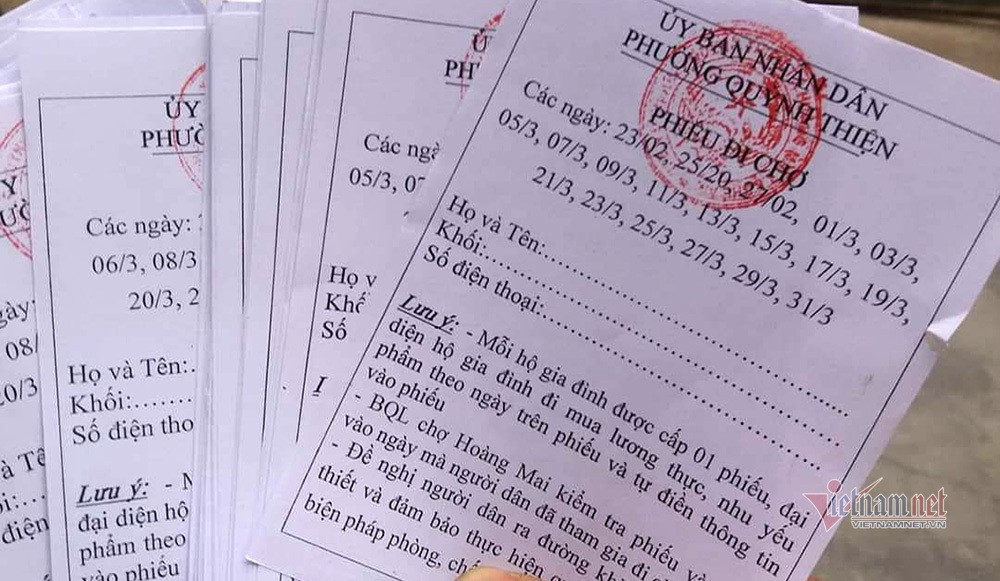 ỦY BAN NHÂN DÂN
PHƯỜNG QUỲNH THIỆN
PHIẾU ĐI CHỢ
Các ngày: 23/02, 25/20, 27/02, 01/3, 03/3,
05/3, 07/3, 09/3, 11/3, 13/3, 15/3, 17/3, 19/3,
21/3, 23/3, 25/3, 27/3, 29/3, 31/3
Họ và Tên:
Khối:
Số điện thoại:
Lưu ý: - Mỗi hộ gia đình được cấp 01 phiếu, đại
diện hộ gia đình đi mua lương thực, nhu yếu
phẩm theo ngày trên phiếu và tự điền thông tin
vào phiếu
- BQL chợ Hoàng Mai kiểm tra phiếu và
vào ngày mà người dân đã tham gia đi
- Đề nghị người dân ra đường
thiết và đảm bảo thực hiện
biện pháp phòng,
Các
05/3,
Họ và
Số
ỦY
Các ngày:
06/3, 08/3
20/3,
Họ và Tên:
Khối:
Số điện
Lưu ý: -
đại diện hộ
phẩm theo
vào phiếu
vietnamnet
VIETNAMNET.VN